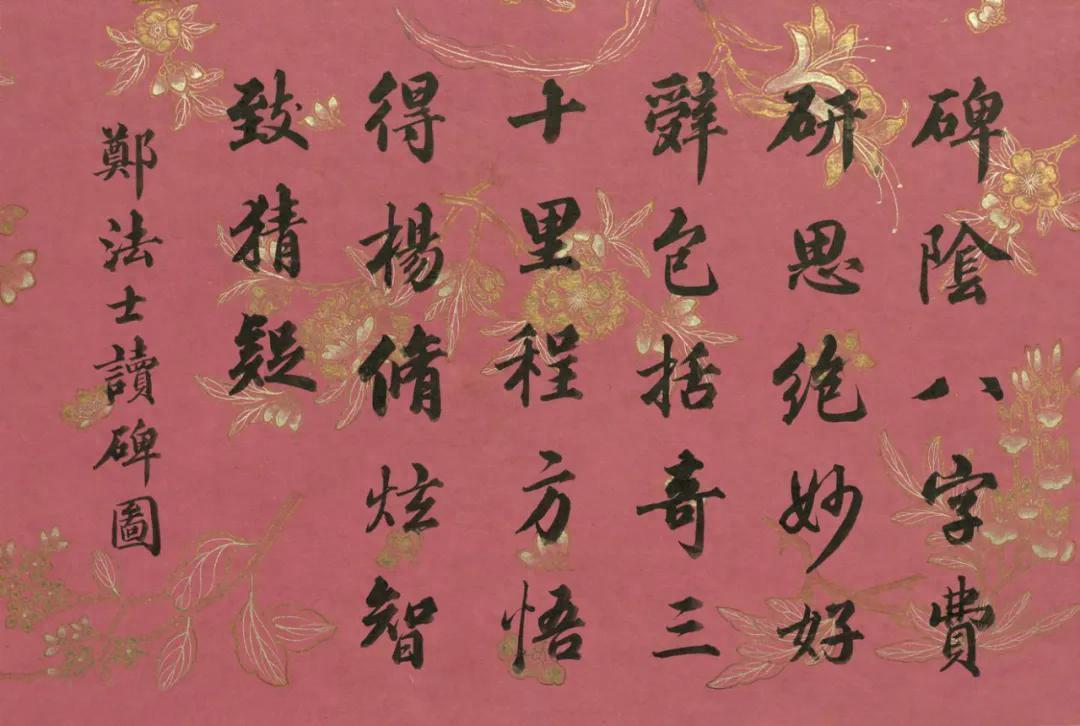 碑陰八字費
研思絶妙好
辤包括奇三
十里程方悟
得楊脩炫智
致猜疑
鄭法士讀碑圖